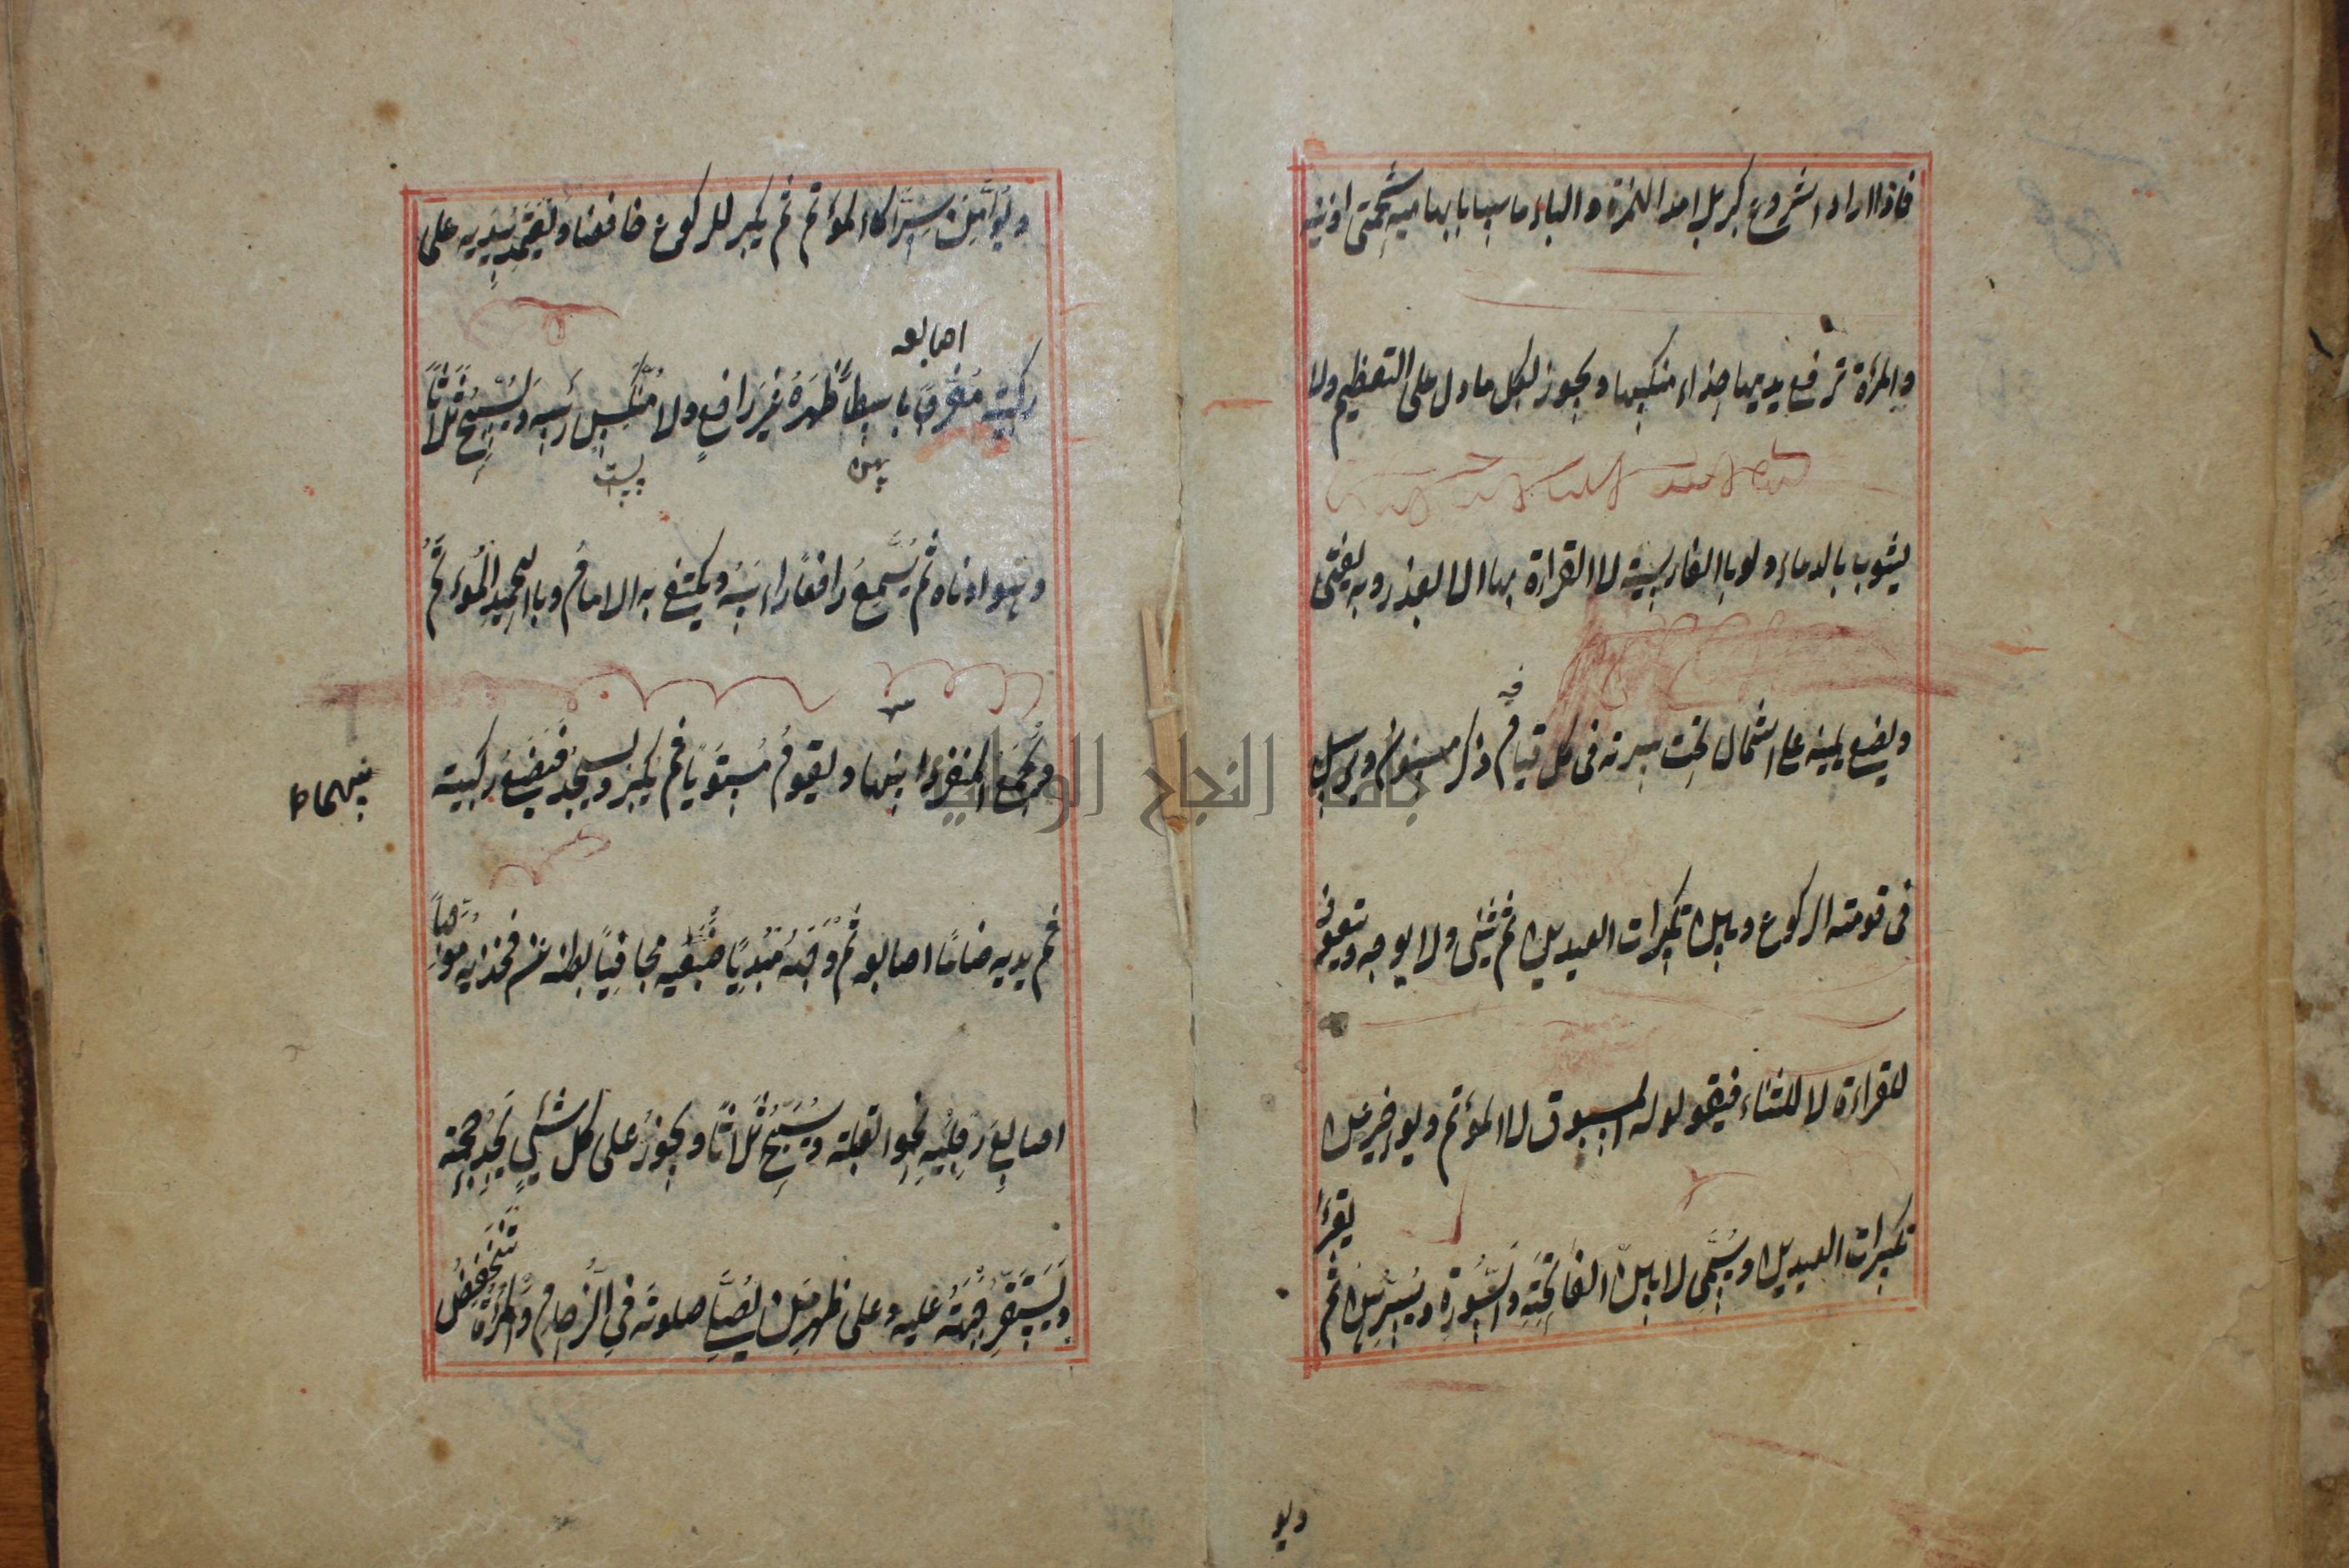 فاذا اراد الشروع كبر بلا مد الهمزة والباء ماسا بابهاميه شحمتى اذنيه
والمرأة ترفع يديها حذاء منكبيها ويجوز بكل ما دل على التعظيم ولا
يشوب بالدعاء ولو بالفارسية لا القراءة بها الا لعذر وبه يفتى
ويضع يمينه على الشمال تحت سرته فى كل قيام فيه ذكر مسنون ويرسل
فى قومته الركوع وبين تكبيرات العيدين ثم يثنى ولا يوجه ويتعوذ
للقراءة لا للثناء فيقوله المسبوق لا المؤتم ويؤخر عن
تكبيرات العيدين ويسمى لا بين الفاتحة والسورة ويسرهن ثم
يقرأ
ويؤمن سرا كالمؤتم ثم يكبر للركوع خافضا ويعتمد بيديه على
ركبتيه مفرجا باسطا ظهره غير رافع ولا منكس رأسه ويسبح ثلاثا
وهو ادناه ثم يسمع رافعا راسه ويكتفى به الامام وبالتحميد المؤتم
ويجمع المنفرد بينهما ويقوم مستويا ثم يكبر ويسجد فيضع ركبتيه
بينهما
ثم يديه ضاما اصابعه ثم وجهه مبديا ضبعيه مجافيا بطنه عن فخذيه موجها
اصابع رجليه نحو القبلة ويسبح ثلاثا ويجوز على كل شئ يجد حجمه
ويستقر جبهته عليه وعلى ظهر من يصلى صلوته فى الزحام والمرأة تنخفض
ولو
جامعة النجاح الوطنية